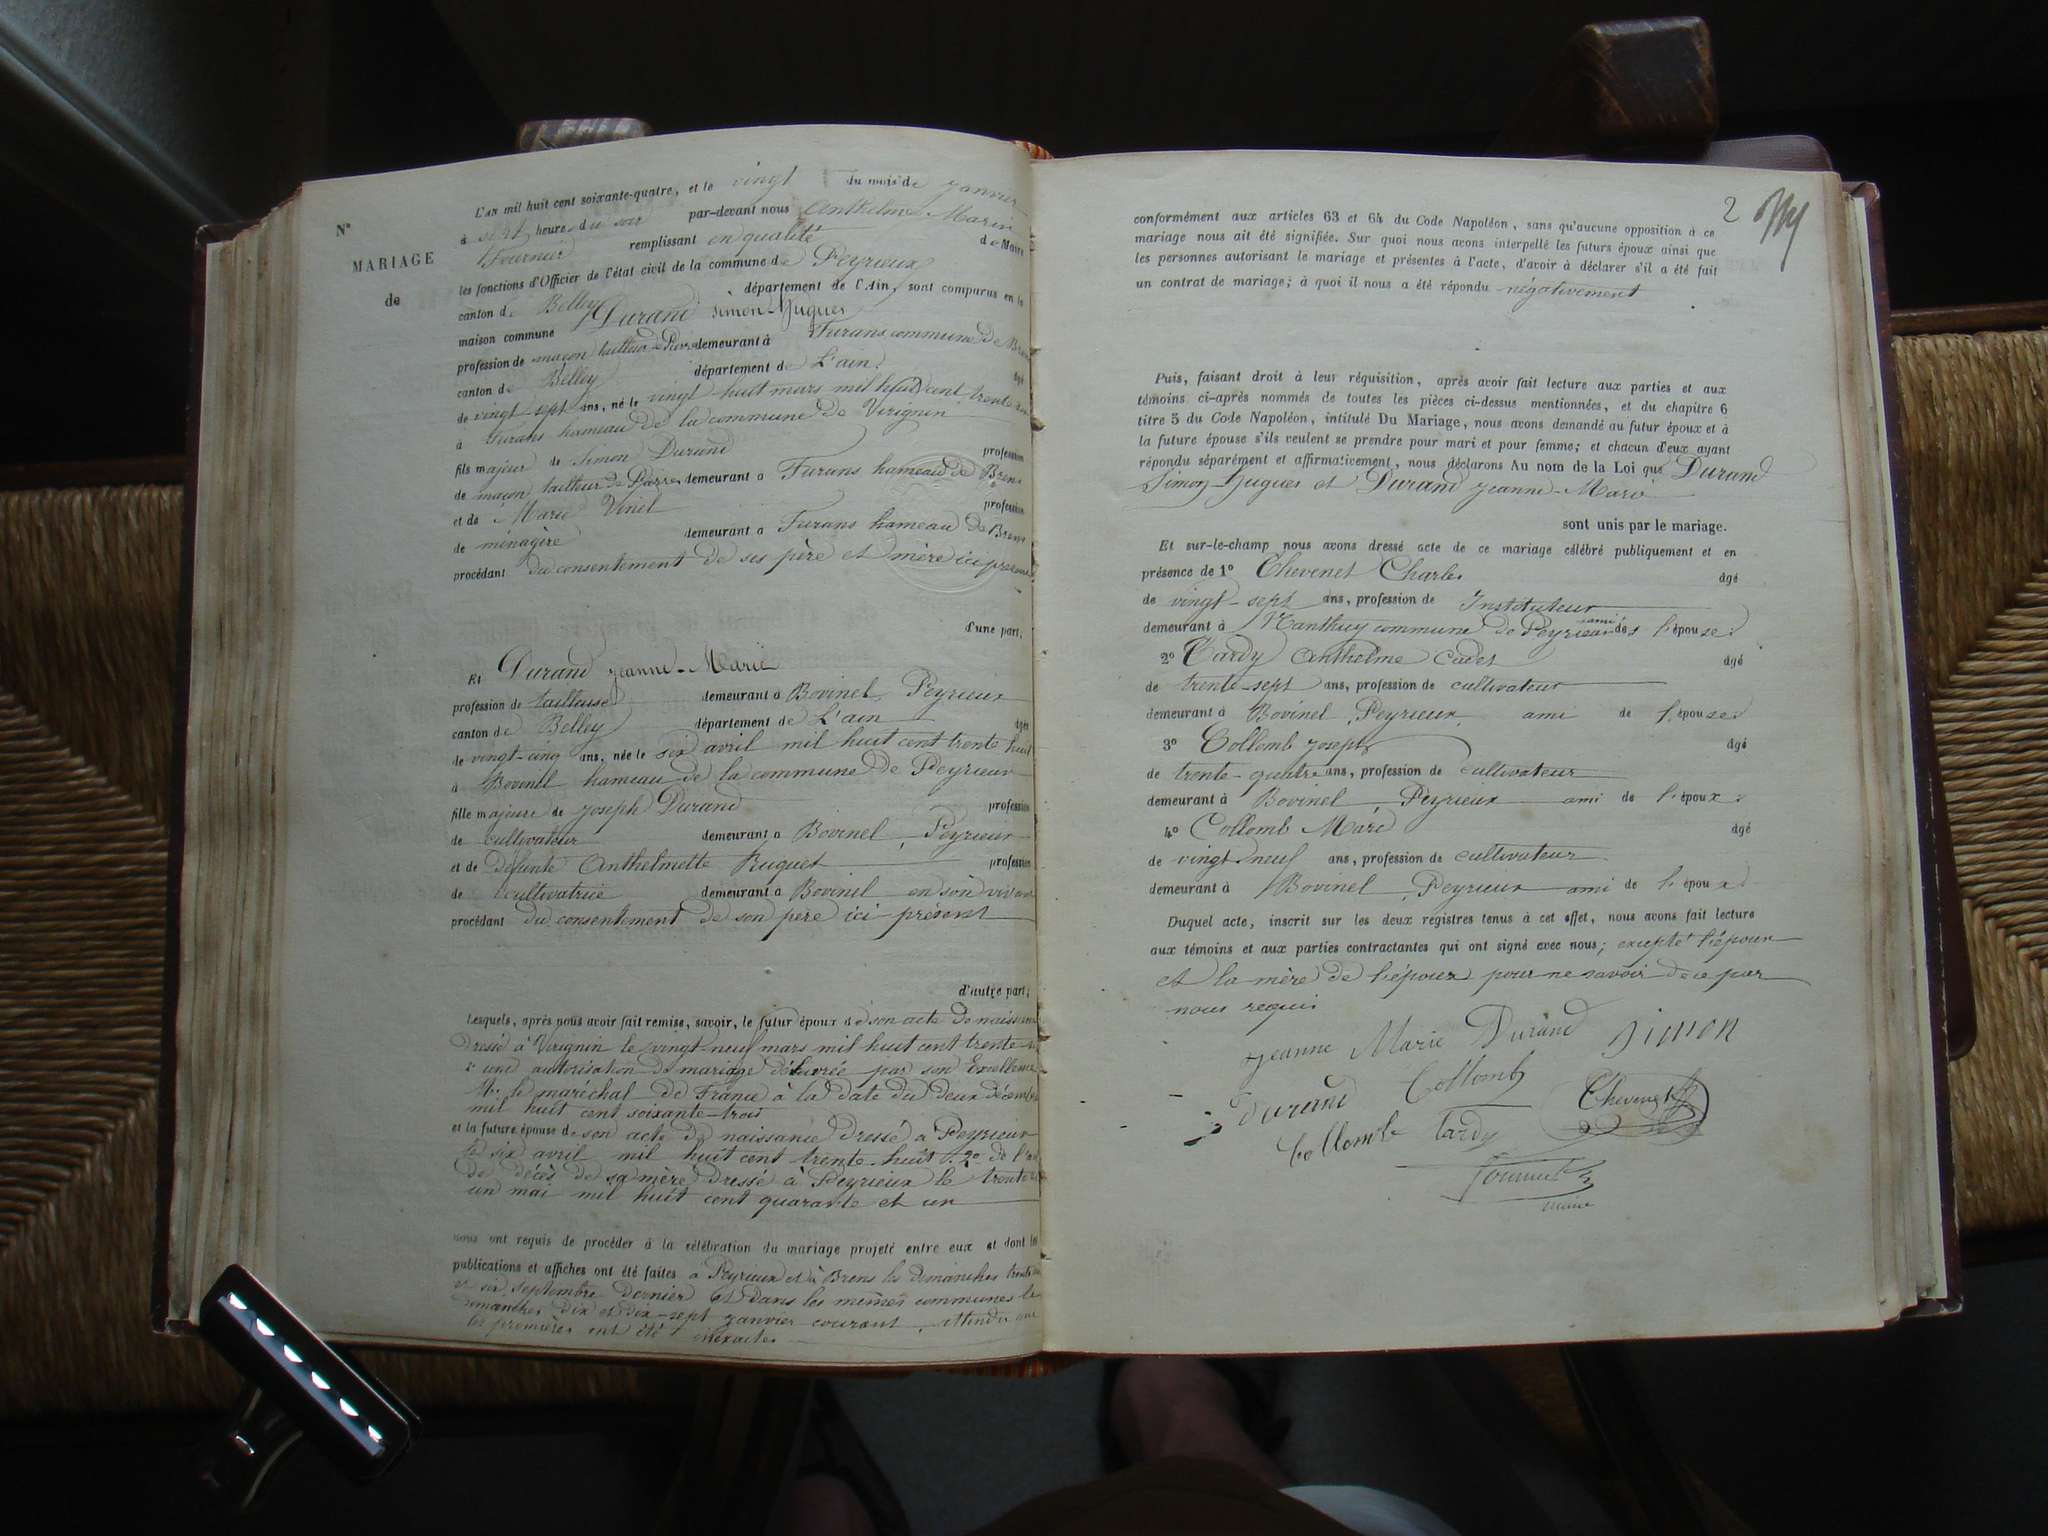 N°
MARIAGE
de
L'AN mil huit cent soixante-quatre, et le vingt du mois de janvier
à sept heures du soir par-devant nous Anthelme Marin
Fournier remplissant en qualité de Maire
les fonctions d'Officier de l'état civil de la commune de Peyrieux
canton de Belley département de l'Ain, sont comparus en la
maison commune Durand Simon-Hugues
profession de maçon tailleur de Pierre demeurant à Furans commune de Brens
canton de Belley département de L'ain âgé
de vingt-sept ans, né le vingt-huit mars mil huit cent trente-six
à Furans hameau de la commune de Virignin
fils majeur de Simon Durand profession
de maçon tailleur de Pierre demeurant à Furans hameau de Brens
et de Marie Vinel profession
de ménagère demeurant à Furans hameau de Brens
procédant du consentement de ses père et mère ici présents
d'une part,
Et Durand jeanne-Marie
profession de tailleuse demeurant à Bovinel, Peyrieux
canton de Belley département de L'ain âgée
de vingt-cinq ans, née le six avril mil huit cent trente huit
à Bovinel hameau de la commune de Peyrieux
fille majeure de joseph Durand profession
de cultivateur demeurant à Bovinel, Peyrieux
et de Défunte Anthelmette Ruguet profession
de cultivatrice demeurant à Bovinel en son vivant
procédant du consentement de son père ici présent
d'autre part;
Lesquels, après nous avoir fait remise, savoir, le futur époux de son acte de naissance
dressé à Virignin le vingt-neuf mars mil huit cent trente-six
une autorisation de mariage délivrée par son Excellence
Mr. le maréchal de France à la date du deux décembre
mil huit cent soixante-trois
et la future épouse de son acte de naissance dressé à Peyrieux
le six avril mil huit cent trente-huit 2° de l'acte
de décès de sa mère dressé à Peyrieux le trente et
un mai mil huit cent quarante et un
nous ont requis de procéder à la célébration du mariage projeté entre eux et dont les
publications et affiches ont été faites à Peyrieux et à Brens les dimanches trente
et six septembre dernier et dans les mêmes communes les
dimanches dix et dix-sept janvier courant, attendu que
les premières ont été inexactes
2
conformément aux articles 63 et 64 du Code Napoléon, sans qu'aucune opposition à ce
mariage nous ait été signifiée. Sur quoi nous avons interpellé les futurs époux ainsi que
les personnes autorisant le mariage et présentes à l'acte, d'avoir à déclarer s'il a été fait
un contrat de mariage; à quoi il nous a été répondu négativement
Puis, faisant droit à leur réquisition, après avoir fait lecture aux parties et aux
témoins ci-après nommés de toutes les pièces ci-dessus mentionnées, et du chapitre 6
titre 5 du Code Napoléon, intitulé Du Mariage, nous avons demandé au futur époux et à
la future épouse s'ils veulent se prendre pour mari et pour femme; et chacun d'eux ayant
répondu séparément et affirmativement, nous déclarons Au nom de la Loi que Durand
Simon-Hugues et Durand jeanne-Marie
sont unis par le mariage.
Et sur-le-champ nous avons dressé acte de ce mariage célébré publiquement et en
présence de 1° Chevenet Charles âgé
de vingt-sept ans, profession de Instituteur
demeurant à Nanthuy commune de Peyrieux ami des l'épouse
2° Tardy Anthelme Cadet âgé
de trente-sept ans, profession de cultivateur
demeurant à Bovinel, Peyrieux, ami de l'épouse
3° Collomb joseph âgé
de trente-quatre ans, profession de cultivateur
demeurant à Bovinel, Peyrieux ami de l'époux
4° Collomb Marc âgé
de vingt-neuf ans, profession de cultivateur
demeurant à Bovinel, Peyrieux ami de l'époux
Duquel acte, inscrit sur les deux registres tenus à cet effet, nous avons fait lecture
aux témoins et aux parties contractantes qui ont signé avec nous; excepté l'époux
et la mère de l'époux pour ne savoir de ce par
nous requis
jeanne Marie Durand Simon
Durand Collomb Chevenet
Collomb Tardy
Fournier
maire